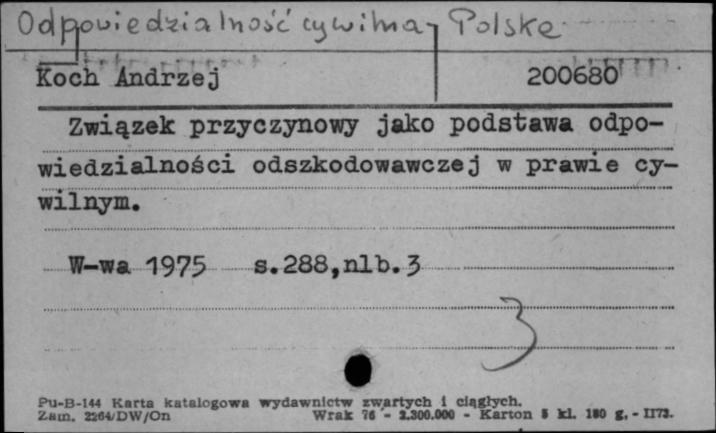 Odpowiedzialność cywilna, Polska
Koch Andrzej 200680
Związek przyczynowy jako podstawa odpo-
wiedzialności odszkodowawczej w prawie cy-
wilnym.
W-wa 1975 s.288,nlb.3
3
Pu-B-144 Karta katalogowa wydawnictw zwartych i ciągłych.
Zam. 2264/DW/On Wrak 76 - 2.300.000 - Karton 5 kl. 180 g. - II73.